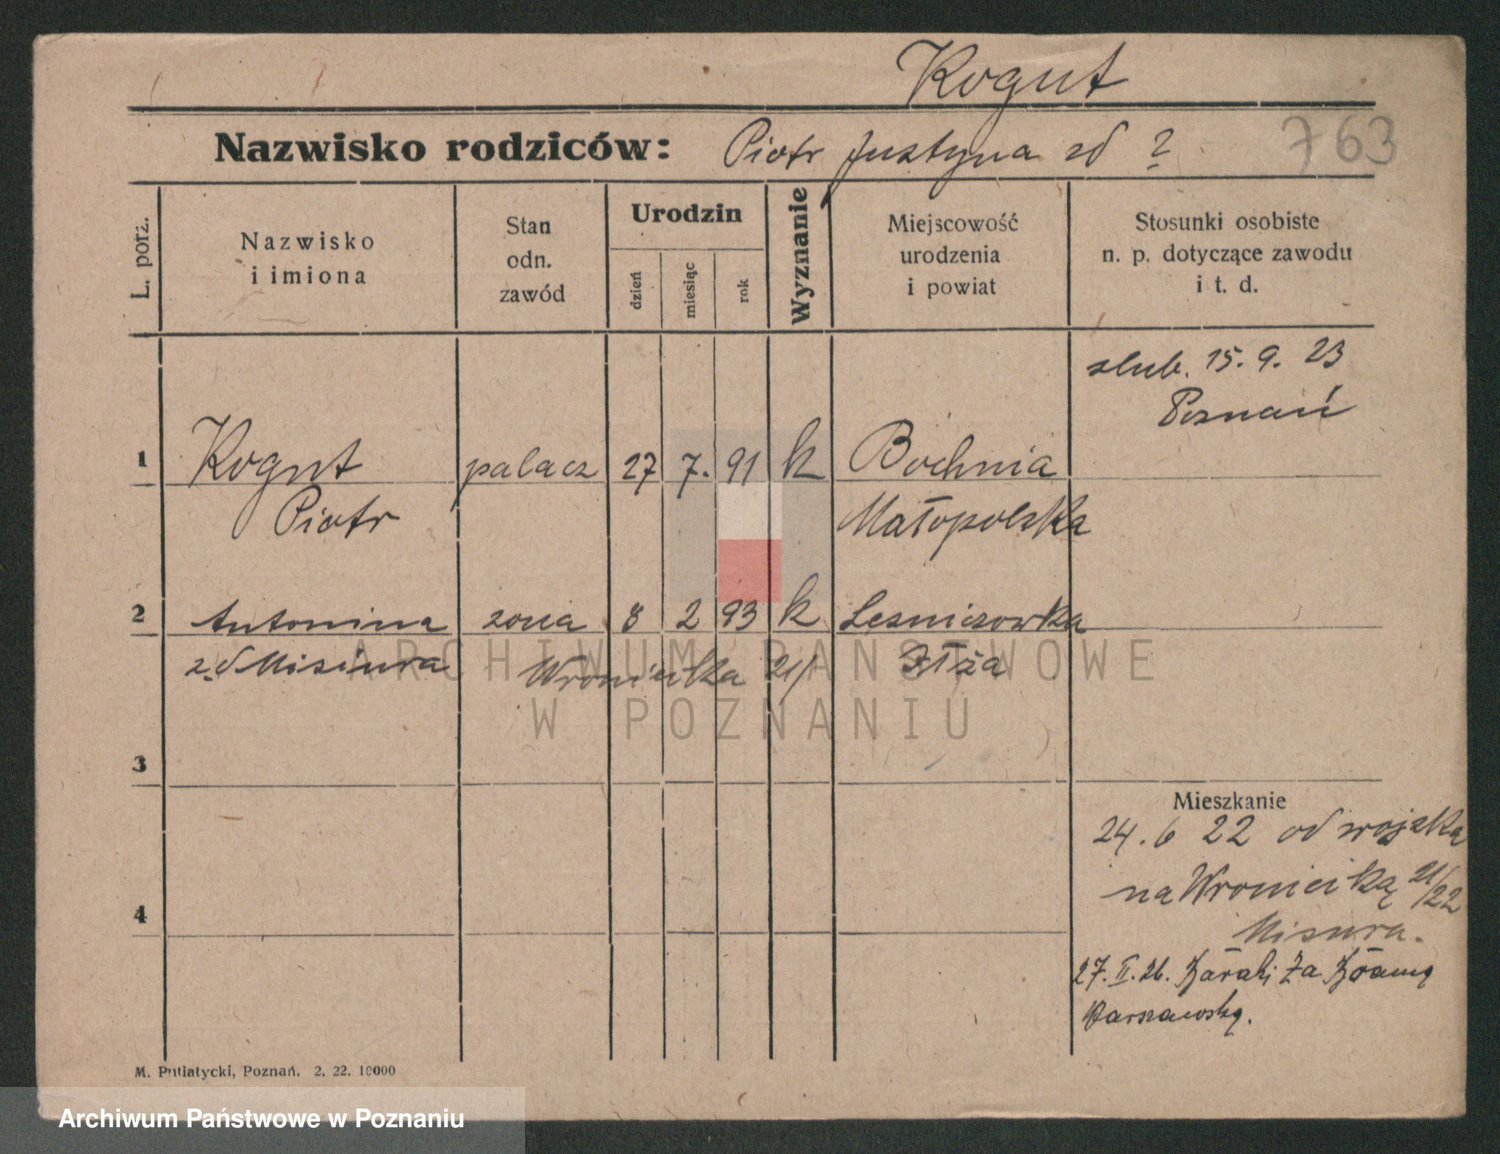 Kogut
Nazwisko rodziców: Piotr Justyna zd ?
763
L. porz.
Nazwisko
i imiona
Stan
odn.
zawód
Urodzin
dzień
miesiąc
rok
Wyznanie
Miejscowość
urodzenia
i powiat
Stosunki osobiste
n. p. dotyczące zawodu
i t. d.
slub. 15. 9. 23
Poznań
1 Kogut palacz 27 7. 91 k Bochnia
Piotr Małopolska
2 Antonina zona 8 2 93 k
z.d Misiura Wroniecka 21/ Iłża
3
4
Mieszkanie
24. 6 22 od wojska
na Wroniecką 21/22
Misura.
27. II. 26. Baraki Za Bramą
Warszawską.
M. Putiatycki, Poznań. 2. 22. 10000
ARCHIWUM PAŃSTWOWE
W POZNANIU
Archiwum Państwowe w Poznaniu